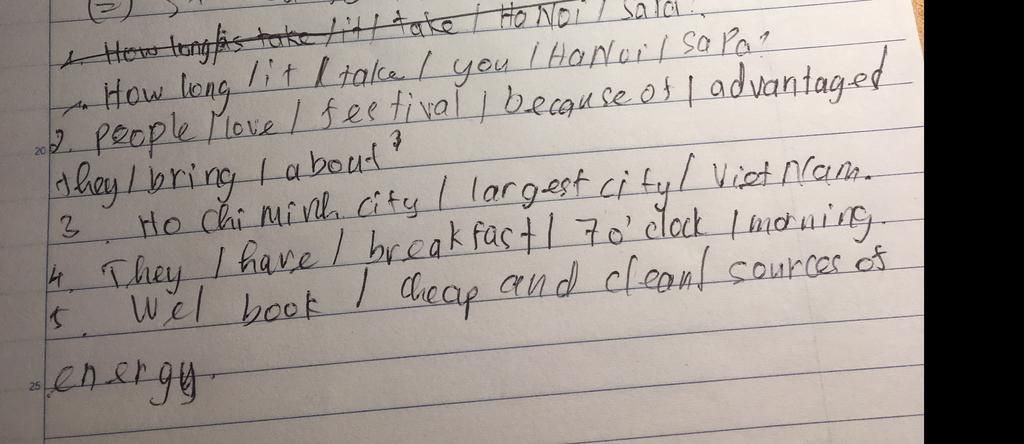 (2)
1. How long / is take / it / take / Ha Noi / SaPa?
1. How long / it / take / you / HaNoi / SaPa?
2. people / love / feetival / because of / advantaged
they / bring / about?
3. Ho Chi minh city / largest city / Viet Nam.
4. They / have / breakfast / 7 o'clock / morning.
5. We / book / cheap and clean / sources of
energy.